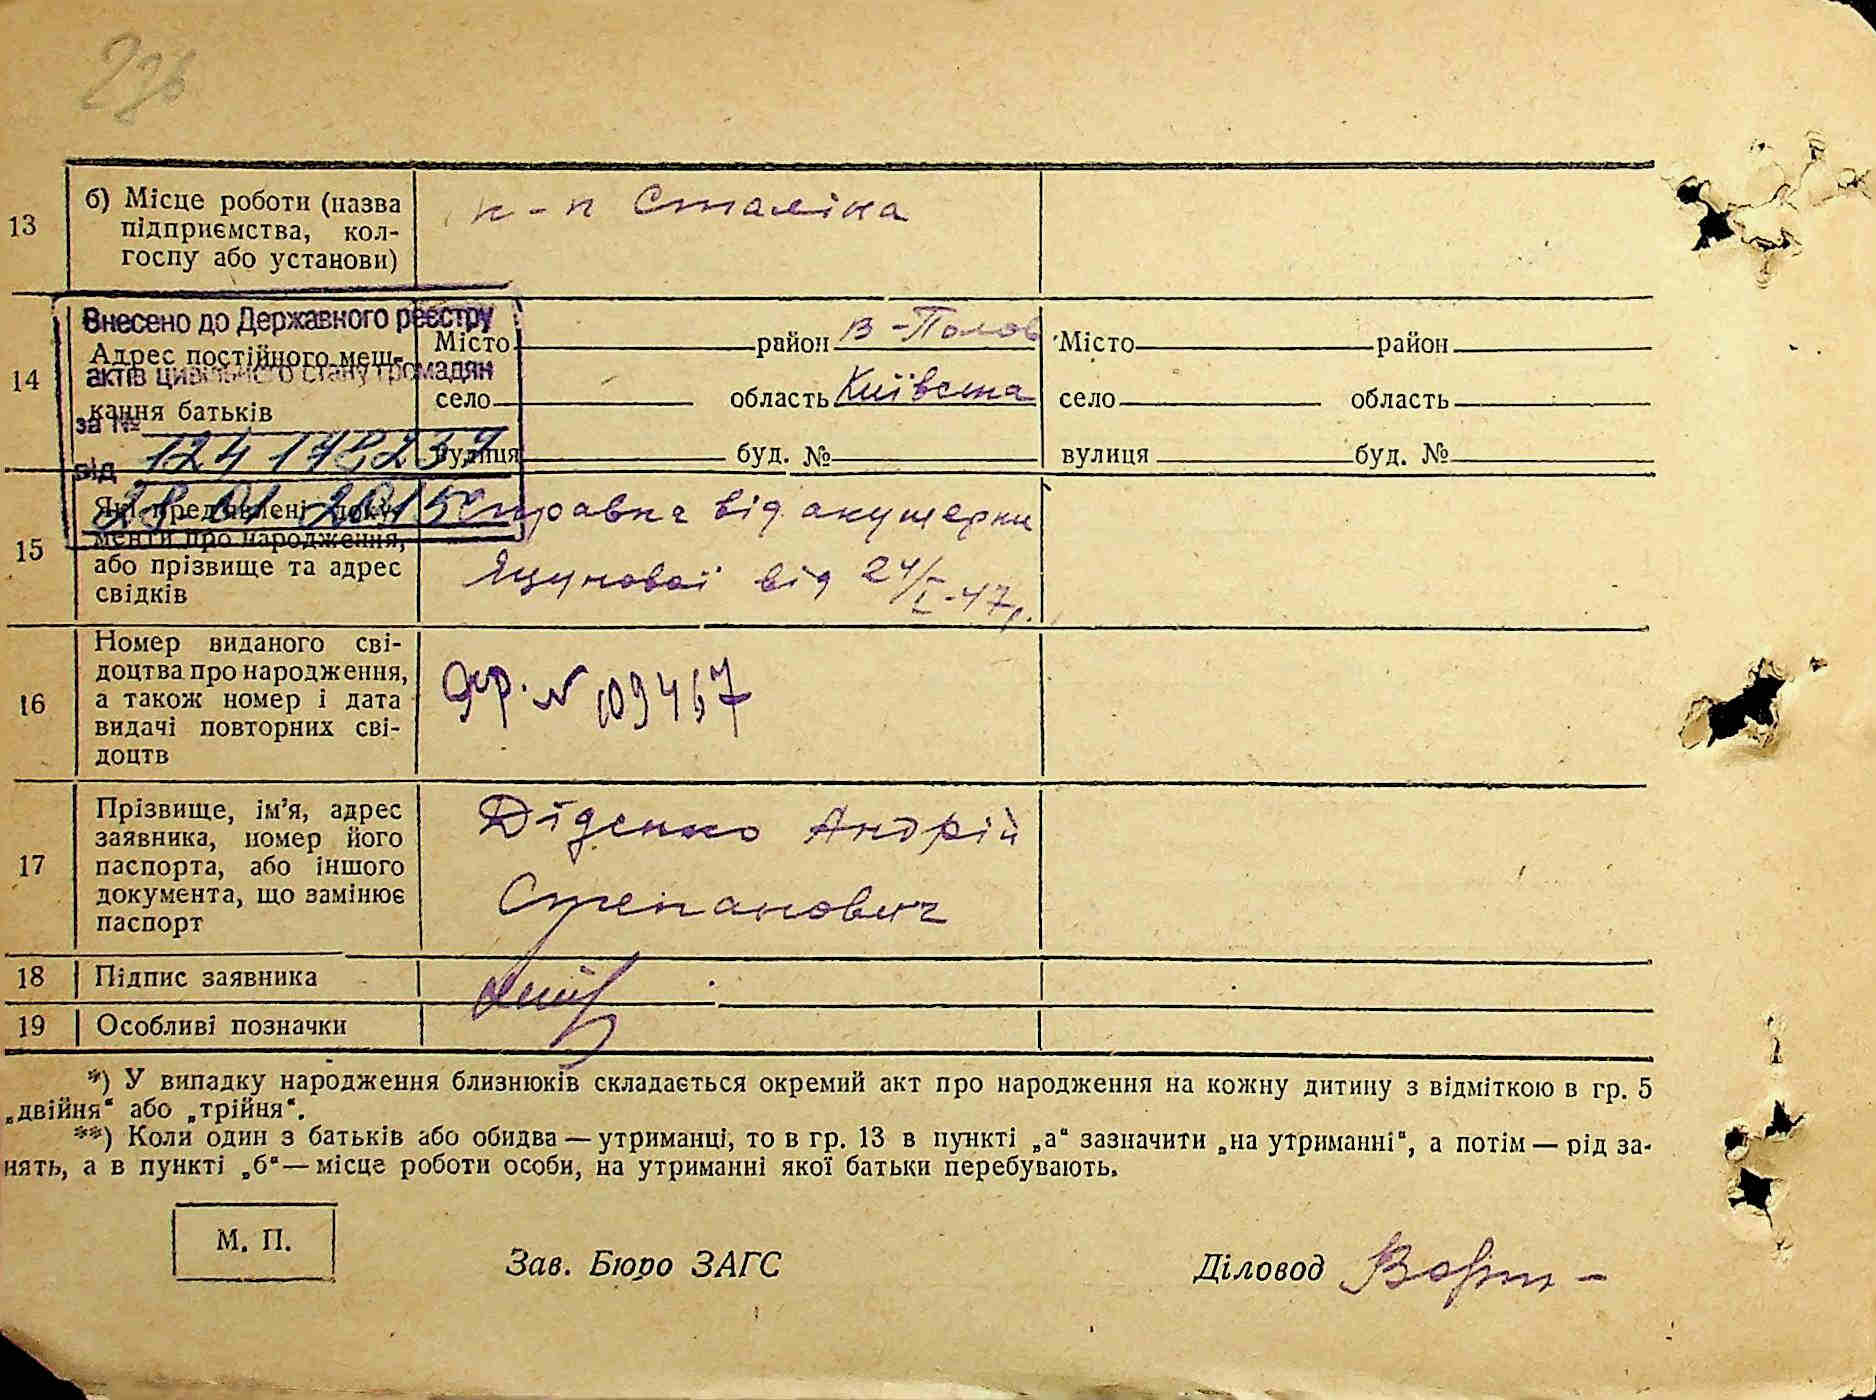 226
13
б) Місце роботи (назва
підприємства, кол-
госпу або установи)
к-п Сталіна
Внесено до Державного реєстру
актів цивільного стану громадян
за №
124 178237
від
28 01 2015
14
Адрес постійного меш-
кання батьків
Місто район В-Полов
село область Київська
вулиця буд. №
Місто район
село область
вулиця буд. №
15
Які пред'явлені доку-
менти про народження,
або прізвище та адрес
свідків
Справка від акушерки
Яцунової від 24/I-47р.
16
Номер виданого сві-
доцтва про народження,
а також номер і дата
видачі повторних сві-
доцтв
№ 109467
17
Прізвище, ім’я, адрес
заявника, номер його
паспорта, або іншого
документа, що замінює
паспорт
Діденко Андрій
Степанович
18 Підпис заявника
19 Особливі позначки
*) У випадку народження близнюків складається окремий акт про народження на кожну дитину з відміткою в гр. 5
„двійня“ або „трійня“.
**) Коли один з батьків або обидва — утриманці, то в гр. 13 в пункті „а“ зазначити „на утриманні“, а потім — рід за-
нять, а в пункті „б“ — місце роботи особи, на утриманні якої батьки перебувають.
М. П.
Зав. Бюро ЗАГС
Діловод